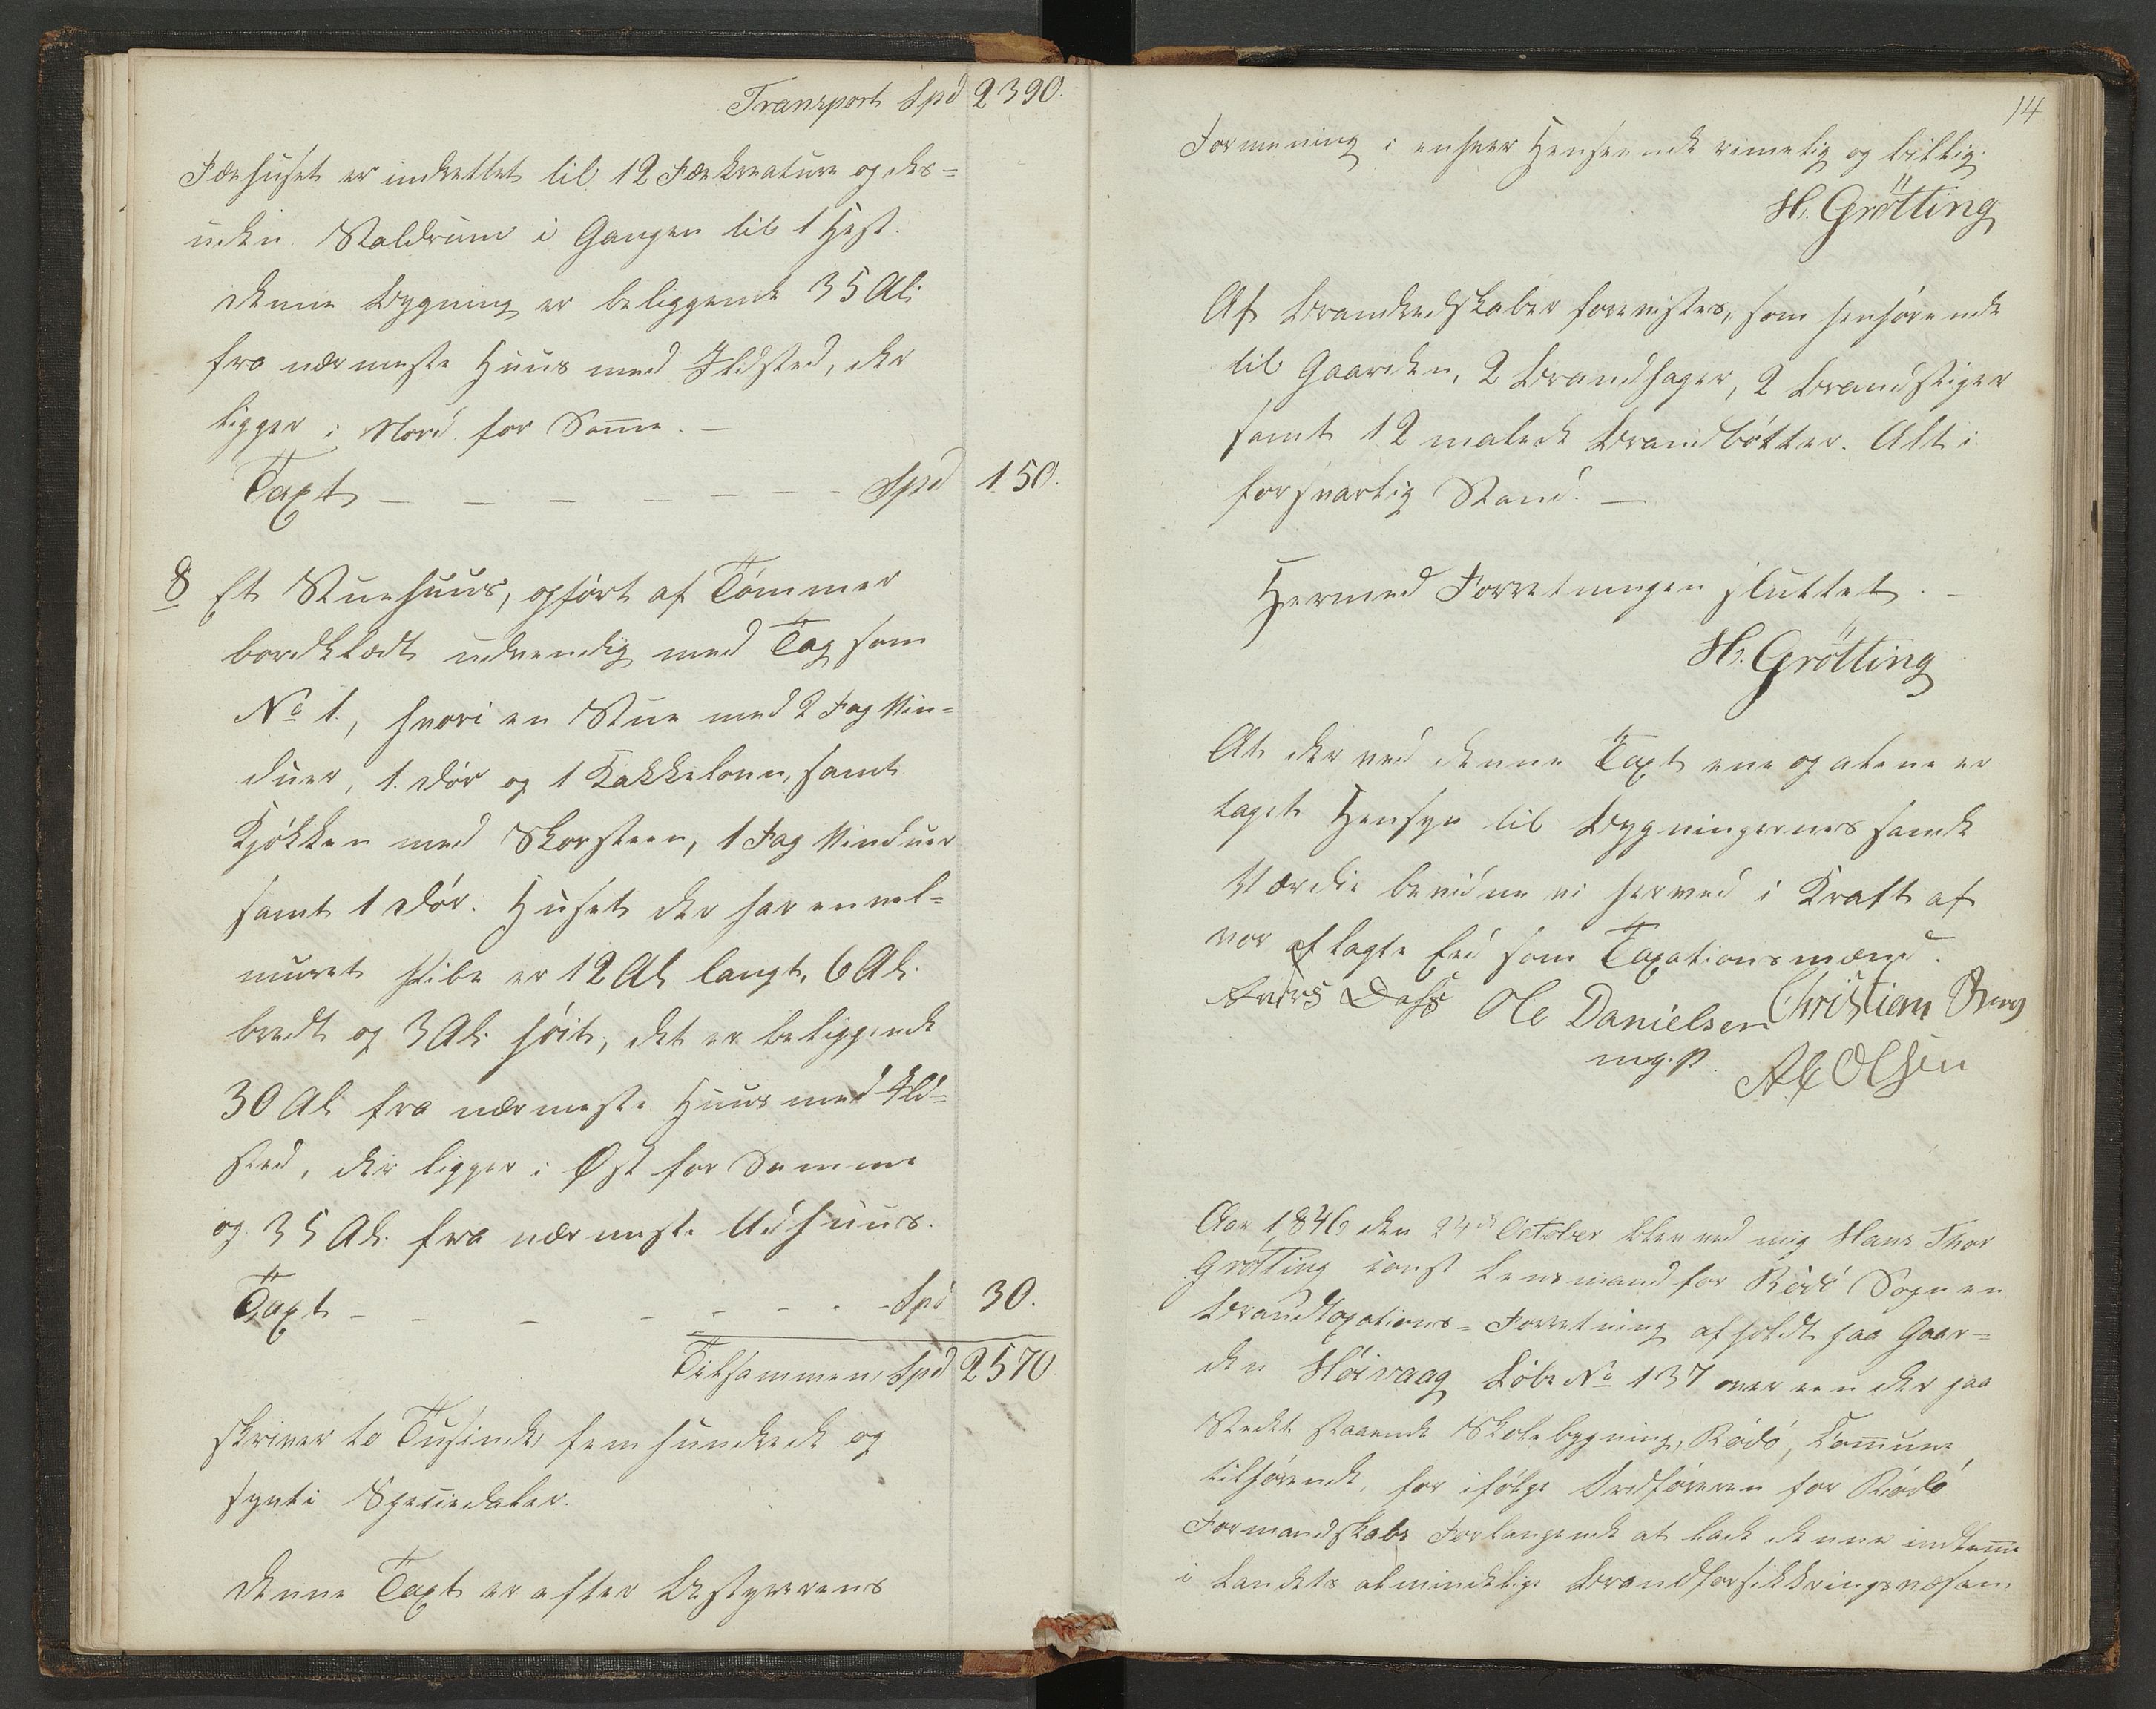 Transport Spd 2390.
Fæehuset er indrettet til 12 Fæekreature og des-
uden Staldrum i Gangen til 1 Hest.
Denne Bygning er beliggende 35 Al:
fra nærmeste Huus med Ildsted, der
ligger i Nord for Same. —
Taxt — — — — — — — Spd 150.
8 Et Stuehuus, opført af Tømmer
bordklædt udvendig med Tag som
No 1., hvori en Stue med 2 Fag Vin-
duer, 1. Dør og 1 Kakkelovn, samt
Kjøkken med Skorsteen, 1 Fag Vinduer
samt 1 Dør. Huset der har en vel-
muret Pibe er 12 Al langt, 6 Al:
bredt og 3 Al: høit, det er beliggende
30 Al fra nærmeste Huus med Ild-
sted, der ligger i Øst for Samme
og 35 Al. fra nærmeste Udhuus.
Taxt - - - - - - - Spd 30.
Tilsammen Spd 2570
skriver to Tusinde, fem hundrede og
sytti Speciedaler.
Denne Taxt er efter Bestyrerens
14
Formening i enhver Henseende rimelig og billig.
H. Grötting
Af Brandredskaber forevistes, som henhørende
til Gaarden, 2 Brandhager, 2 Brandstiger
samt 12 malede Brandbøtter. Alt i
forsvarlig Stand. —
Hermed Forretningen sluttet. -
H. Grötting
At der ved denne Taxt ene og alene er
taget Hensyn til Bygningernes sande
Værdie bevidne vi herved i Kraft af
vor aflagte Eed som Taxationsmænd.
Dass Ole Danielsen Christian
m.p. Olsen
Aar 1846 den 24de October blev ved mig Hans Thor
Grötting const Lensmand for Rödö Sogn en
Brandtaxations-Forretning afholdt paa Gaar-
den Höivaag Löbe No 137 over een der paa
Stedet staaende Skolebygning, Rödö, Comune
tilhørende, for ifølge Ordføreren for Rödö
Formandskabs Forlangende at lade denne indtegne
i Landets almindelige Brandforsikkringsvæsen